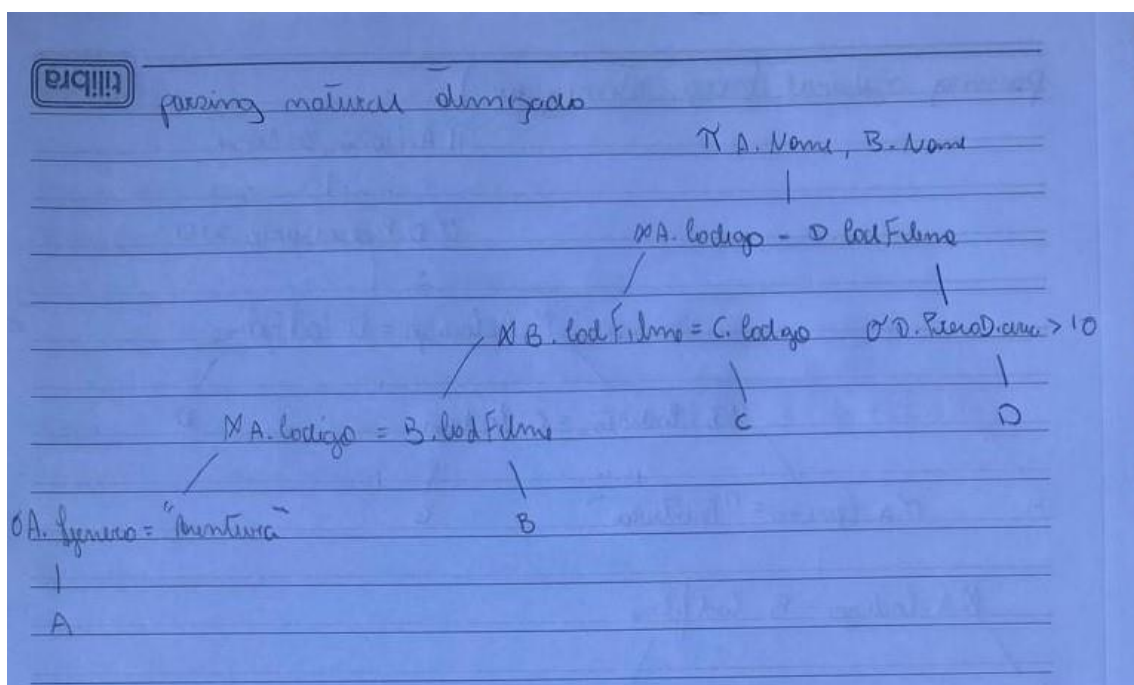 tilibra
parsing natural
π A. Nome, B. Nome
⋈ A. Codigo = D. CodFilme
⋈ B. CodFilme = C. Codigo σ D. > 10
⋈ A. Codigo = B. CodFilme C D
σ A. Genero = "Aventura" B
A